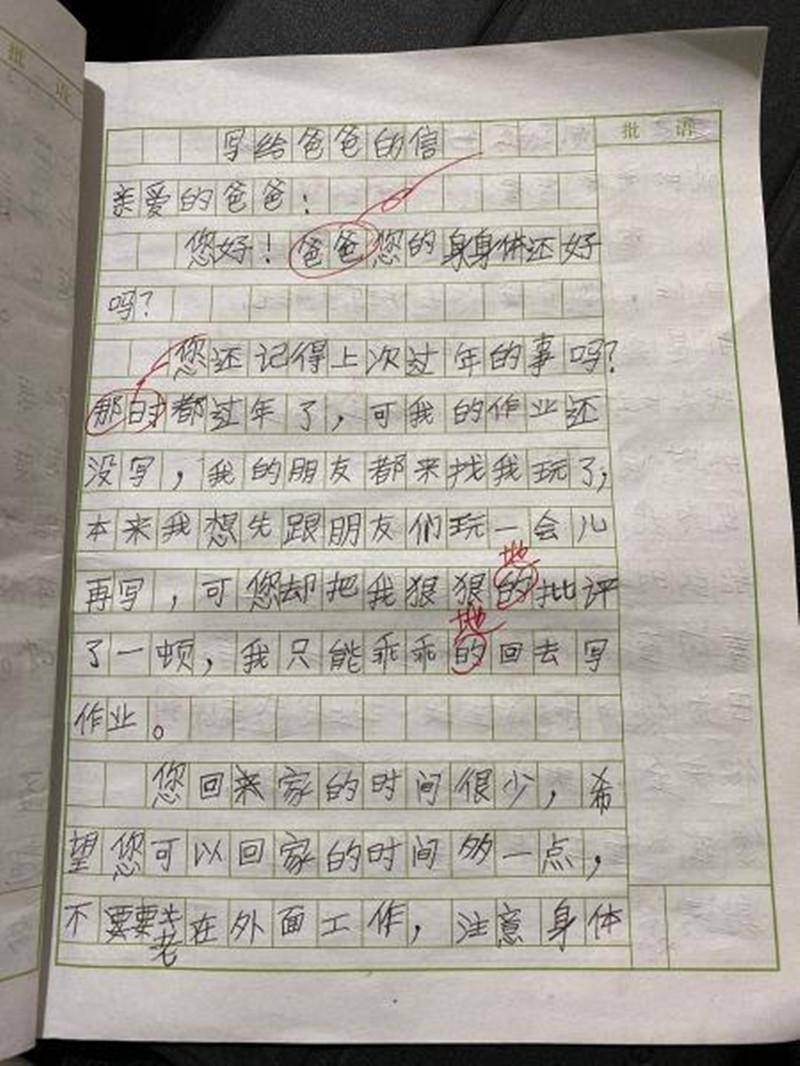 批语
批语
写给爸爸的信
亲爱的爸爸:
您好!爸爸您的身身体还好
吗?
您还记得上次过年的事吗?
那时都过年了,可我的作业还
没写,我的朋友都来找我玩了,
本来我想先跟朋友们玩一会儿
地
再写,可您却把我狠狠的批评
地
了一顿,我只能乖乖的回去写
作业。
您回来家的时间很少,希
望您可以回家的时间多一点,
不要要老在外面工作,注意身体